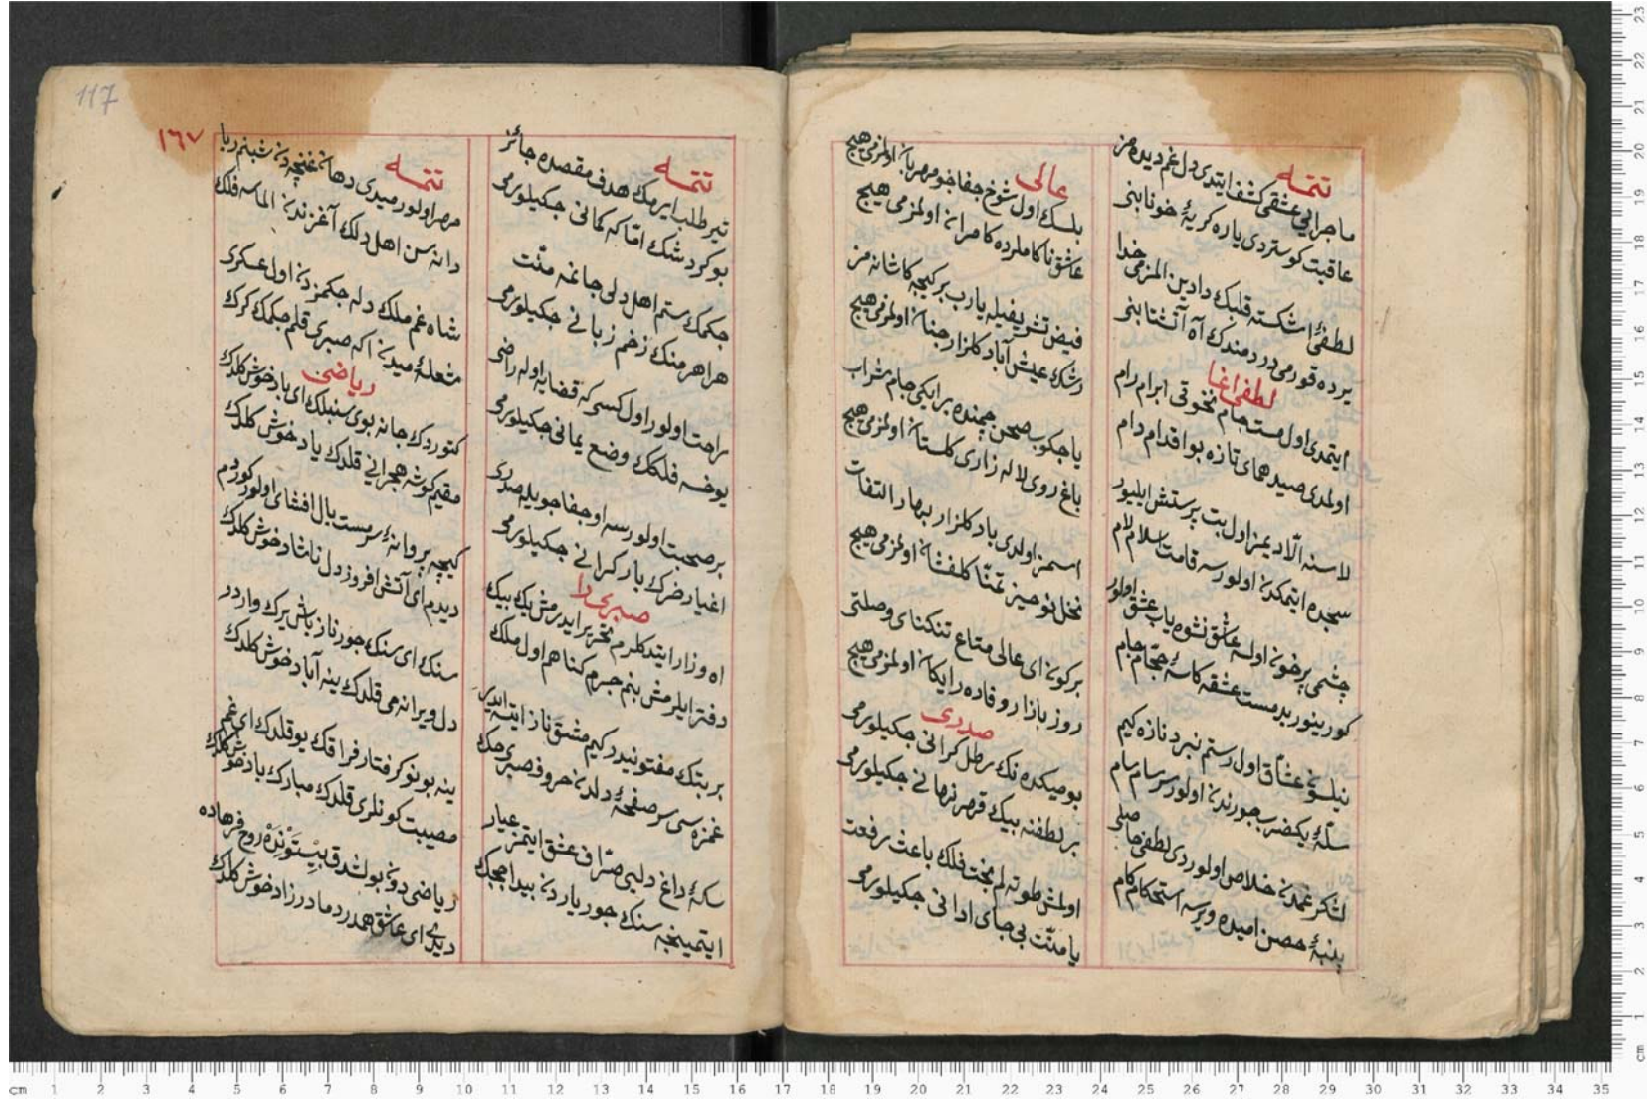 تتمه
ماجرای عشقی کشف ایتدی دل غم دیده مز
عاقبت کوستردی یاره کریهٔ خونابنی
لطفی اشکسته قلبك دادین المزمی خدا
یرده قورمی دردمندك آه آتشتابنی
لطفی اغا
ایتمدی اول مست جام نخوتی ابرام رام
اولمدی صید همای تازه بو اقدام دام
لاسنه الّا دیمز اول بت پرستش ایلیور
سجده ایتمکدن اولورسه قامت اسلام لام
چشمی پر خون اولسه عاشق نشوه یاب عشق اولور
کورینور بدمست عشقه کاسهٔ حجّام جام
نیلسون عشّاق اول رستم نبرد نازه کیم
سلّهٔ یکضرب جورندن اولور سرسام سام
لشکر غمدن خلاص اولوردی لطفی حاصلی
پنبهٔ حصن امیده ویرسه استحکام کام
عالی
بلسك اول شوخ جفاجو مهربان اولمزمی هیچ
عاشق ناکاملرده کامران اولمزمی هیچ
فیض تشریفیله یارب بر کیجه کاشانه مز
رشك عیش آباد کلزار جنان اولمزمی هیچ
یا چکوب صحن چمنده بر ایکی جام شراب
باغ روی لاله زاری کلستان اولمزمی هیچ
اسمز اولدی باد کلزار بهار التفات
نخل نوخیز تمنّا کلفشان اولمزمی هیچ
بر کون ای عالی متاع تنکنای وصلتی
روز بازار وفاده رایکان اولمزمی هیچ
صدری
بو میکده نك رطل کرانی چکیلورمی
بر لطفنه بیك قهر نهانی چکیلورمی
اولمش طوته لم بخت فلك باعث رفعت
یا منّت بی جای ادانی چکیلورمی
تتمه
تیر طلب ایرمك هدف مقصده جائز
بو کردشك امّا که کمانی چکیلورمی
چکمك ستم اهل دلی جانمه منّت
هر اهرمنك زخم زبانی چکیلورمی
راحت اولور اول کسی که قضایه اوله راضی
یوخسه فلکك وضع یمانی چکیلورمی
بر صحبت اولورسه او جفاجویله صدری
اغیار خرك بار کرانی چکیلورمی
صبری دا
اه و زار ایتدکلرم تحریر ایدرمش بیك بیك
دفتر ایلرمش بنم جرم کناهم اول ملك
بر بتك مفتونیدر کیم مشق ناز ایتسه ایدر
غمزه سی سر صفحهٔ دلدن حروف صبری حك
سکهٔ داغ دلبی صرّاف عشق ایتمز عیار
ایتمینجه سنك جور یاردن پیدا محك
١٦٧
117
تتمه
مهر اولور میدی دهان غنچه دن شبنم ربا
دانه سن اهل دلك آغزندن الماسه فلك
شاه غم ملك دله چکمزدن اول عسکری
مشعلهٔ میدن اکه صبری قلم چکمك کرك
ریاضی
کتوردك جانه بوی سنبلك ای باد خوش کلدك
مقیم کوشه هجرانی قلدك یاد خوش کلدك
کیجه پروانهٔ سرمست بال افشای اولور کوردم
دیدم ای آتش افروز دل ناشاد خوش کلدك
سنك ای سنك جور ناز باش یرك واردر
دل ویرانه می قلدك ینه آباد خوش کلدك
ینه بونو کرفتار فراقك یوقلدك ای غم
مصیبت کونلری قلدك مبارك باد خوش کلدك
ریاضی دون بولشدق بیستونده روح فرهاده
دیدی ای عاشق همدرد مادرزاد خوش کلدك